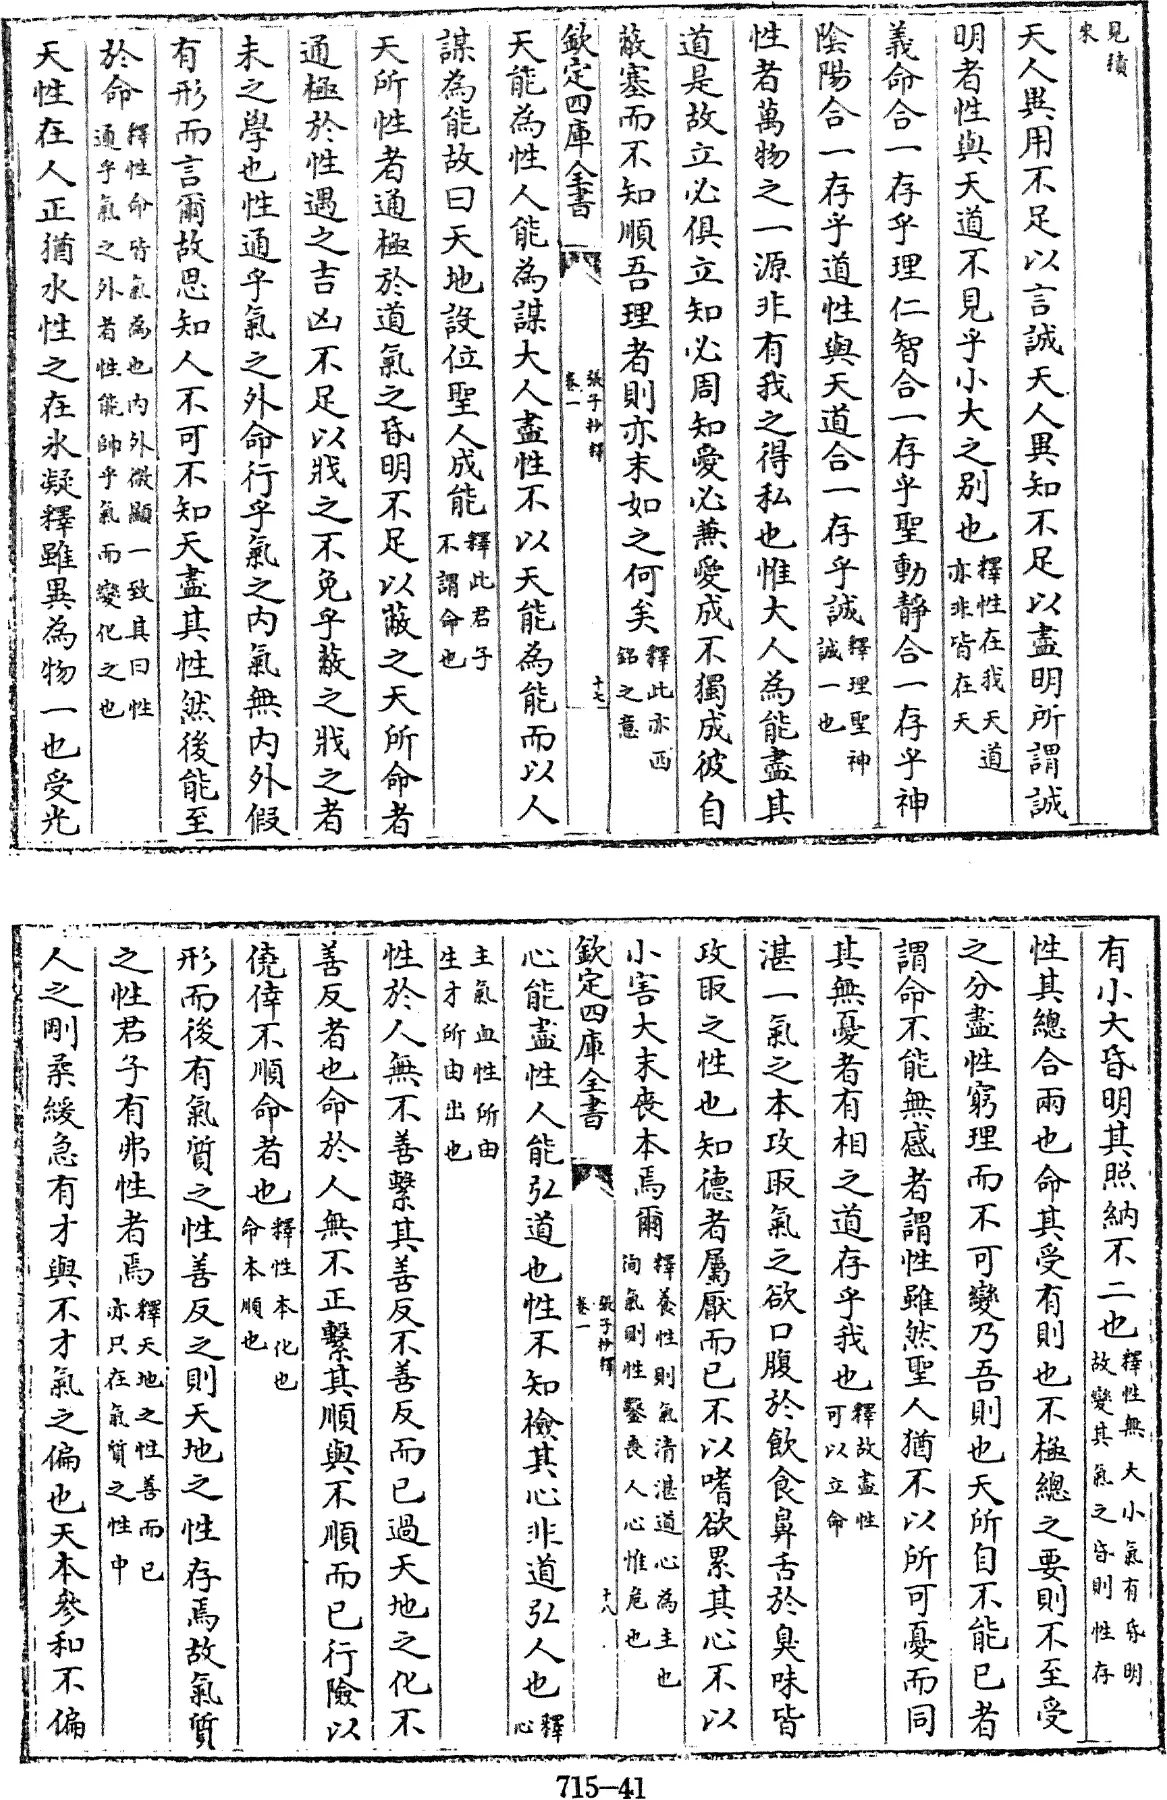 見績
來
天人異用不足以言誠天人異知不足以盡明所謂誠
明者性與天道不見乎小大之別也釋性在我天道亦非皆在天
義命合一存乎理仁智合一存乎聖動靜合一存乎神
陰陽合一存乎道性與天道合一存乎誠釋理聖神誠一也
性者萬物之一源非有我之得私也惟大人為能盡其
道是故立必俱立知必周知愛必兼愛成不獨成彼自
蔽塞而不知順吾理者則亦末如之何矣釋此亦西銘之意
欽定四庫全書 張子抄釋卷一 十七
天能為性人能為謀大人盡性不以天能為能而以人
謀為能故曰天地設位聖人成能釋此君子不謂命也
天所性者通極於道氣之昏明不足以蔽之天所命者
通極於性遇之吉凶不足以戕之不免乎蔽之戕之者
未之學也性通乎氣之外命行乎氣之内氣無内外假
有形而言爾故思知人不可不知天盡其性然後能至
於命釋性命皆氣為也内外微顯一致其曰性通乎氣之外者性能帥乎氣而變化之也
天性在人正猶水性之在氷凝釋雖異為物一也受光
有小大昏明其照納不二也釋性無大小氣有昏明故變其氣之昏則性存
性其總合兩也命其受有則也不極總之要則不至受
之分盡性窮理而不可變乃吾則也天所自不能已者
謂命不能無感者謂性雖然聖人猶不以所可憂而同
其無憂者有相之道存乎我也釋故盡性可以立命
湛一氣之本攻取氣之欲口腹於飲食鼻舌於臭味皆
攻取之性也知德者屬厭而已不以嗜欲累其心不以
小害大末喪本焉爾釋養性則氣清湛道心為主也徇氣則性鑿喪人心惟危也
欽定四庫全書 張子抄釋卷一 十八
心能盡性人能弘道也性不知檢其心非道弘人也釋心
主氣血性所由生才所由出也
性於人無不善繫其善反不善反而已過天地之化不
善反者也命於人無不正繫其順與不順而已行險以
僥倖不順命者也釋性本化也命本順也
形而後有氣質之性善反之則天地之性存焉故氣質
之性君子有弗性者焉釋天地之性善而已亦只在氣質之性中
人之剛柔緩急有才與不才氣之偏也天本參和不偏
715-41